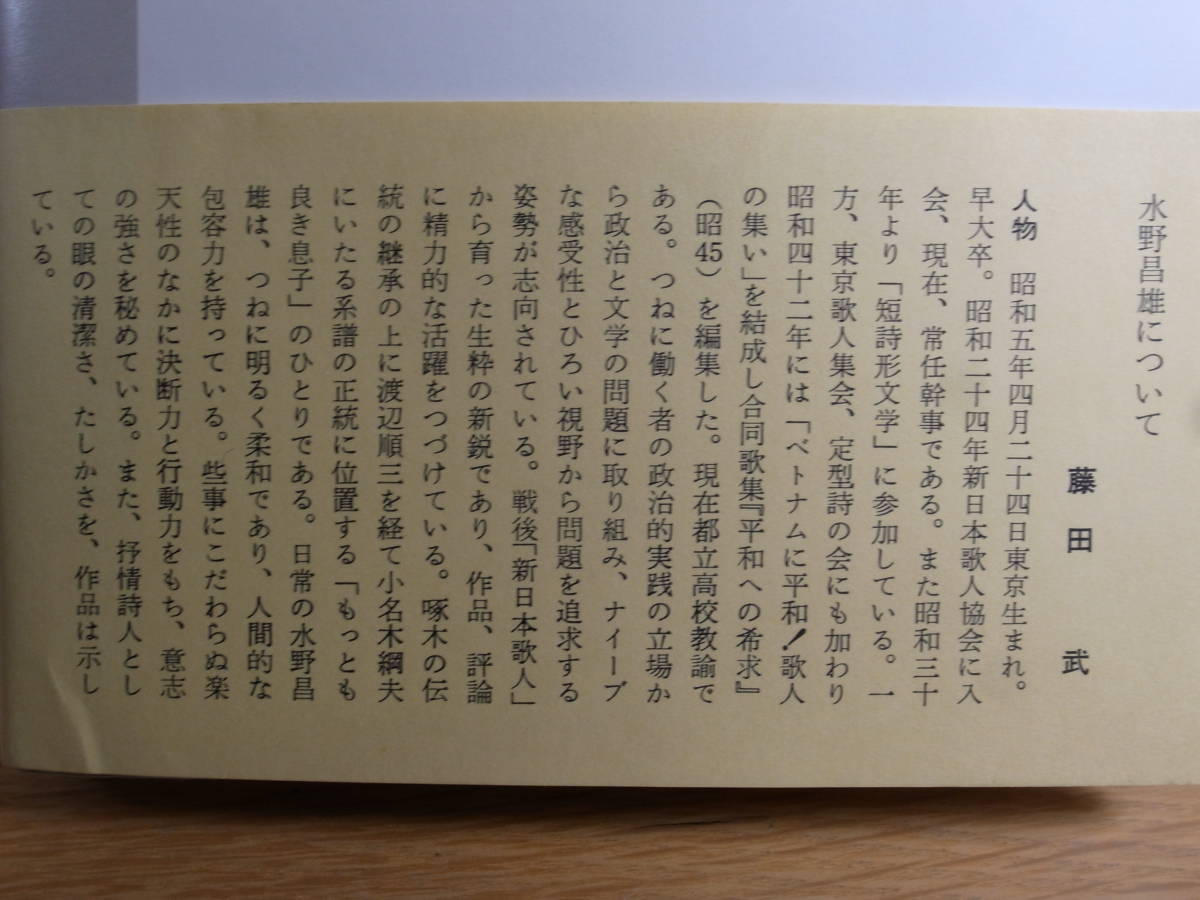 水野昌雄について
藤田　武
人物　昭和五年四月二十四日東京生まれ。
早大卒。昭和二十四年新日本歌人協会に入
会、現在、常任幹事である。また昭和三十
年より「短詩形文学」に参加している。一
方、東京歌人集会、定型詩の会にも加わり
昭和四十二年には「ベトナムに平和！歌人
の集い」を結成し合同歌集『平和への希求』
（昭45）を編集した。現在都立高校教諭で
ある。つねに働く者の政治的実践の立場か
ら政治と文学の問題に取り組み、ナイーブ
な感受性とひろい視野から問題を追求する
姿勢が志向されている。戦後「新日本歌人」
から育った生粋の新鋭であり、作品、評論
に精力的な活躍をつづけている。啄木の伝
統の継承の上に渡辺順三を経て小名木綱夫
にいたる系譜の正統に位置する「もっとも
良き息子」のひとりである。日常の水野昌
雄は、つねに明るく柔和であり、人間的な
包容力を持っている。些事にこだわらぬ楽
天性のなかに決断力と行動力をもち、意志
の強さを秘めている。また、抒情詩人とし
ての眼の清潔さ、たしかさを、作品は示し
ている。